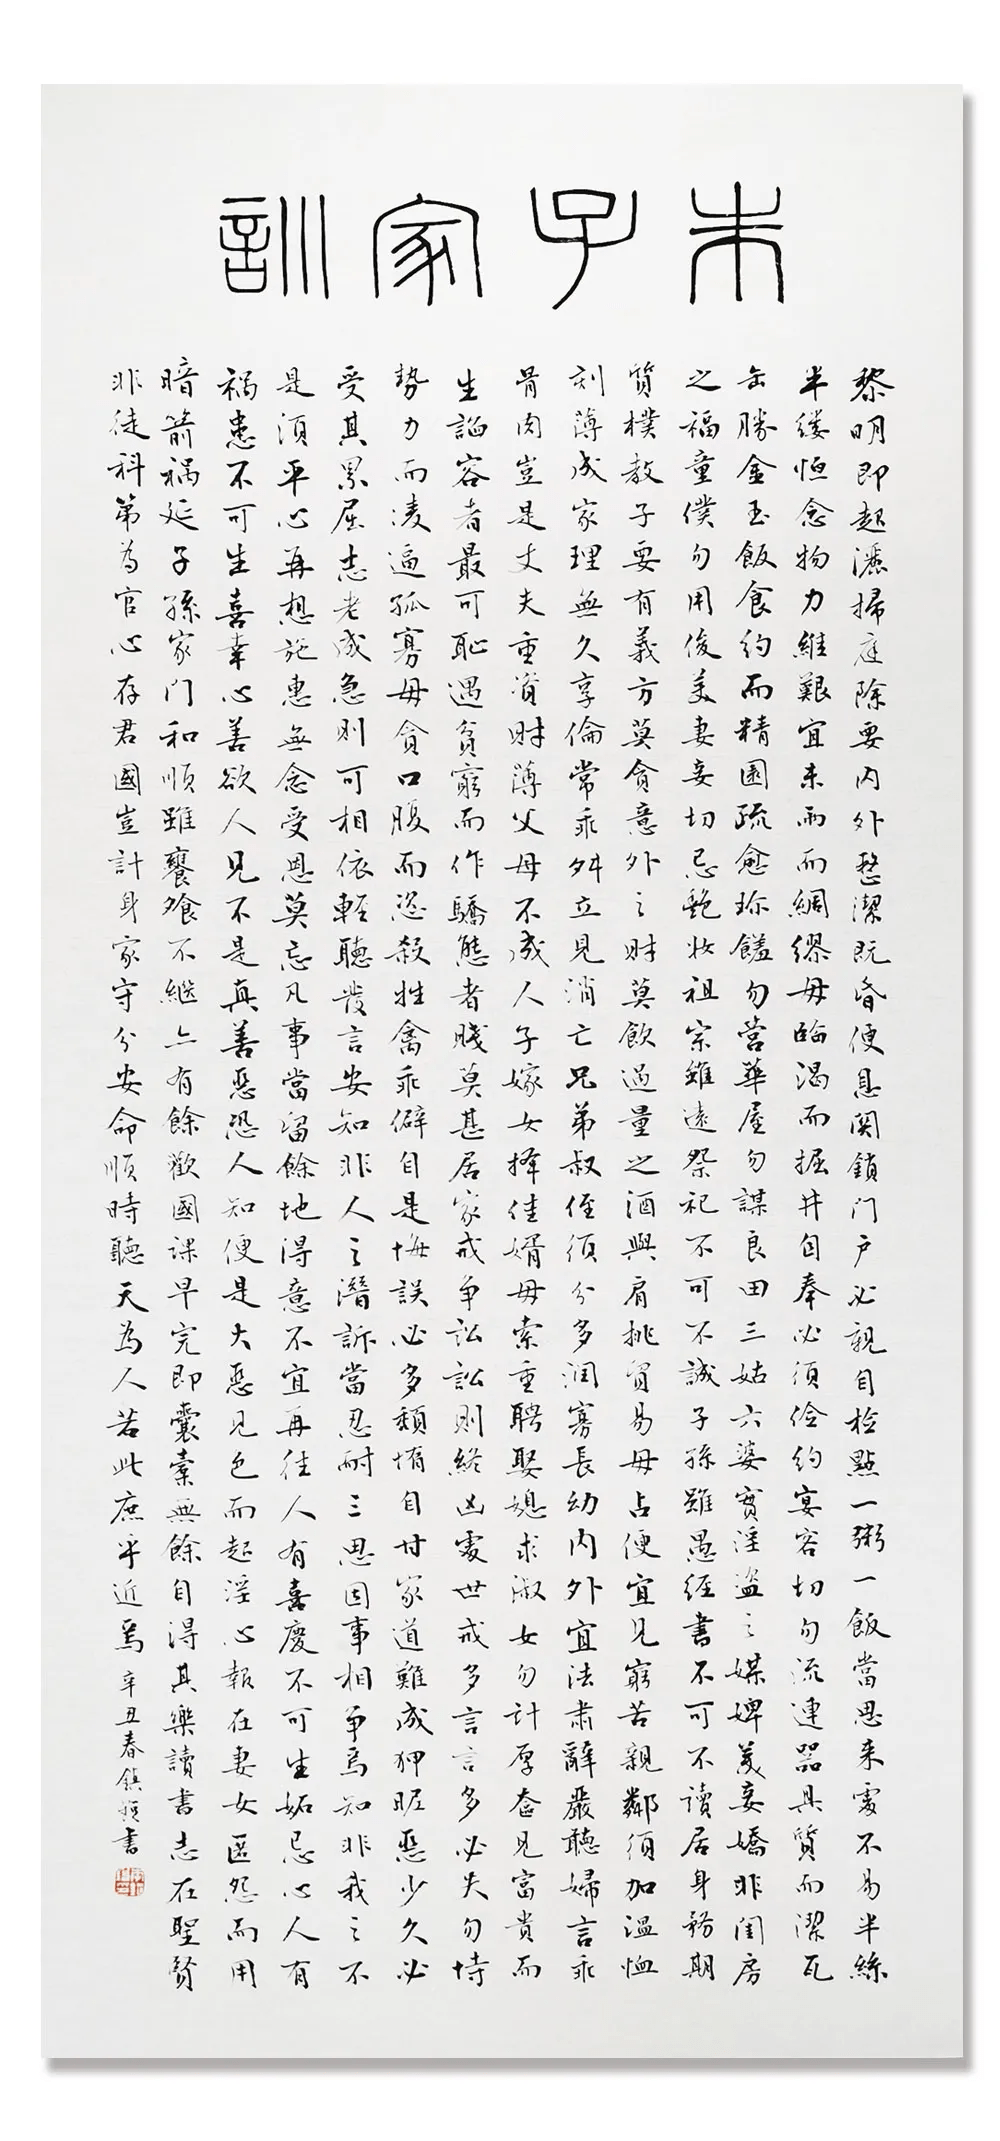 朱子家訓
黎明即起灑掃庭除要内外整潔既昏便息関鎖门户必親自检點一粥一飯當思来處不易半絲
半缕恒念物力維艱宜未雨而綢缪毋臨渴而掘井自奉必须俭约宴客切勿流連器具質而潔瓦
缶勝金玉飯食约而精園疏愈珎饈勿营華屋勿謀良田三姑六婆實淫盗之媒婢美妾嬌非閨房
之福童僕勿用俊美妻妾切忌艶妆祖宗雖遠祭祀不可不誠子孫雖愚经書不可不讀居身務期
質樸教子要有義方莫貪意外之财莫飲過量之酒與肩挑貿易毋占便宜見窮苦親鄰须加温恤
刻薄成家理無久享倫常乖舛立見消亡兄弟叔侄须分多润寡長幼内外宜法肃辭嚴聽婦言乖
骨肉豈是丈夫重資財薄父母不成人子嫁女择佳婿毋索重聘娶媳求淑女勿计厚奩見富貴而
生諂容者最可恥遇貧窮而作驕態者賤莫甚居家戒争訟訟則终凶處世戒多言言多必失勿恃
勢力而凌逼孤寡毋貪口腹而恣殺牲禽乖僻自是悔誤必多颓惰自甘家道難成狎昵恶少久必
受其累屈志老成急則可相依輕聽發言安知非人之潛訴當忍耐三思因事相争焉知非我之不
是须平心再想施惠無念受恩莫忘凡事當留餘地得意不宜再往人有喜慶不可生妒忌心人有
禍患不可生喜幸心善欲人見不是真善恶恐人知便是大恶見色而起淫心報在妻女匿怨而用
暗箭禍延子孫家门和順雖饔飧不繼亦有餘歡國課早完即囊橐無餘自得其樂讀書志在聖贤
非徒科第為官心存君國豈計身家守分安命順時聽天為人若此庶乎近焉 辛丑春鎮書